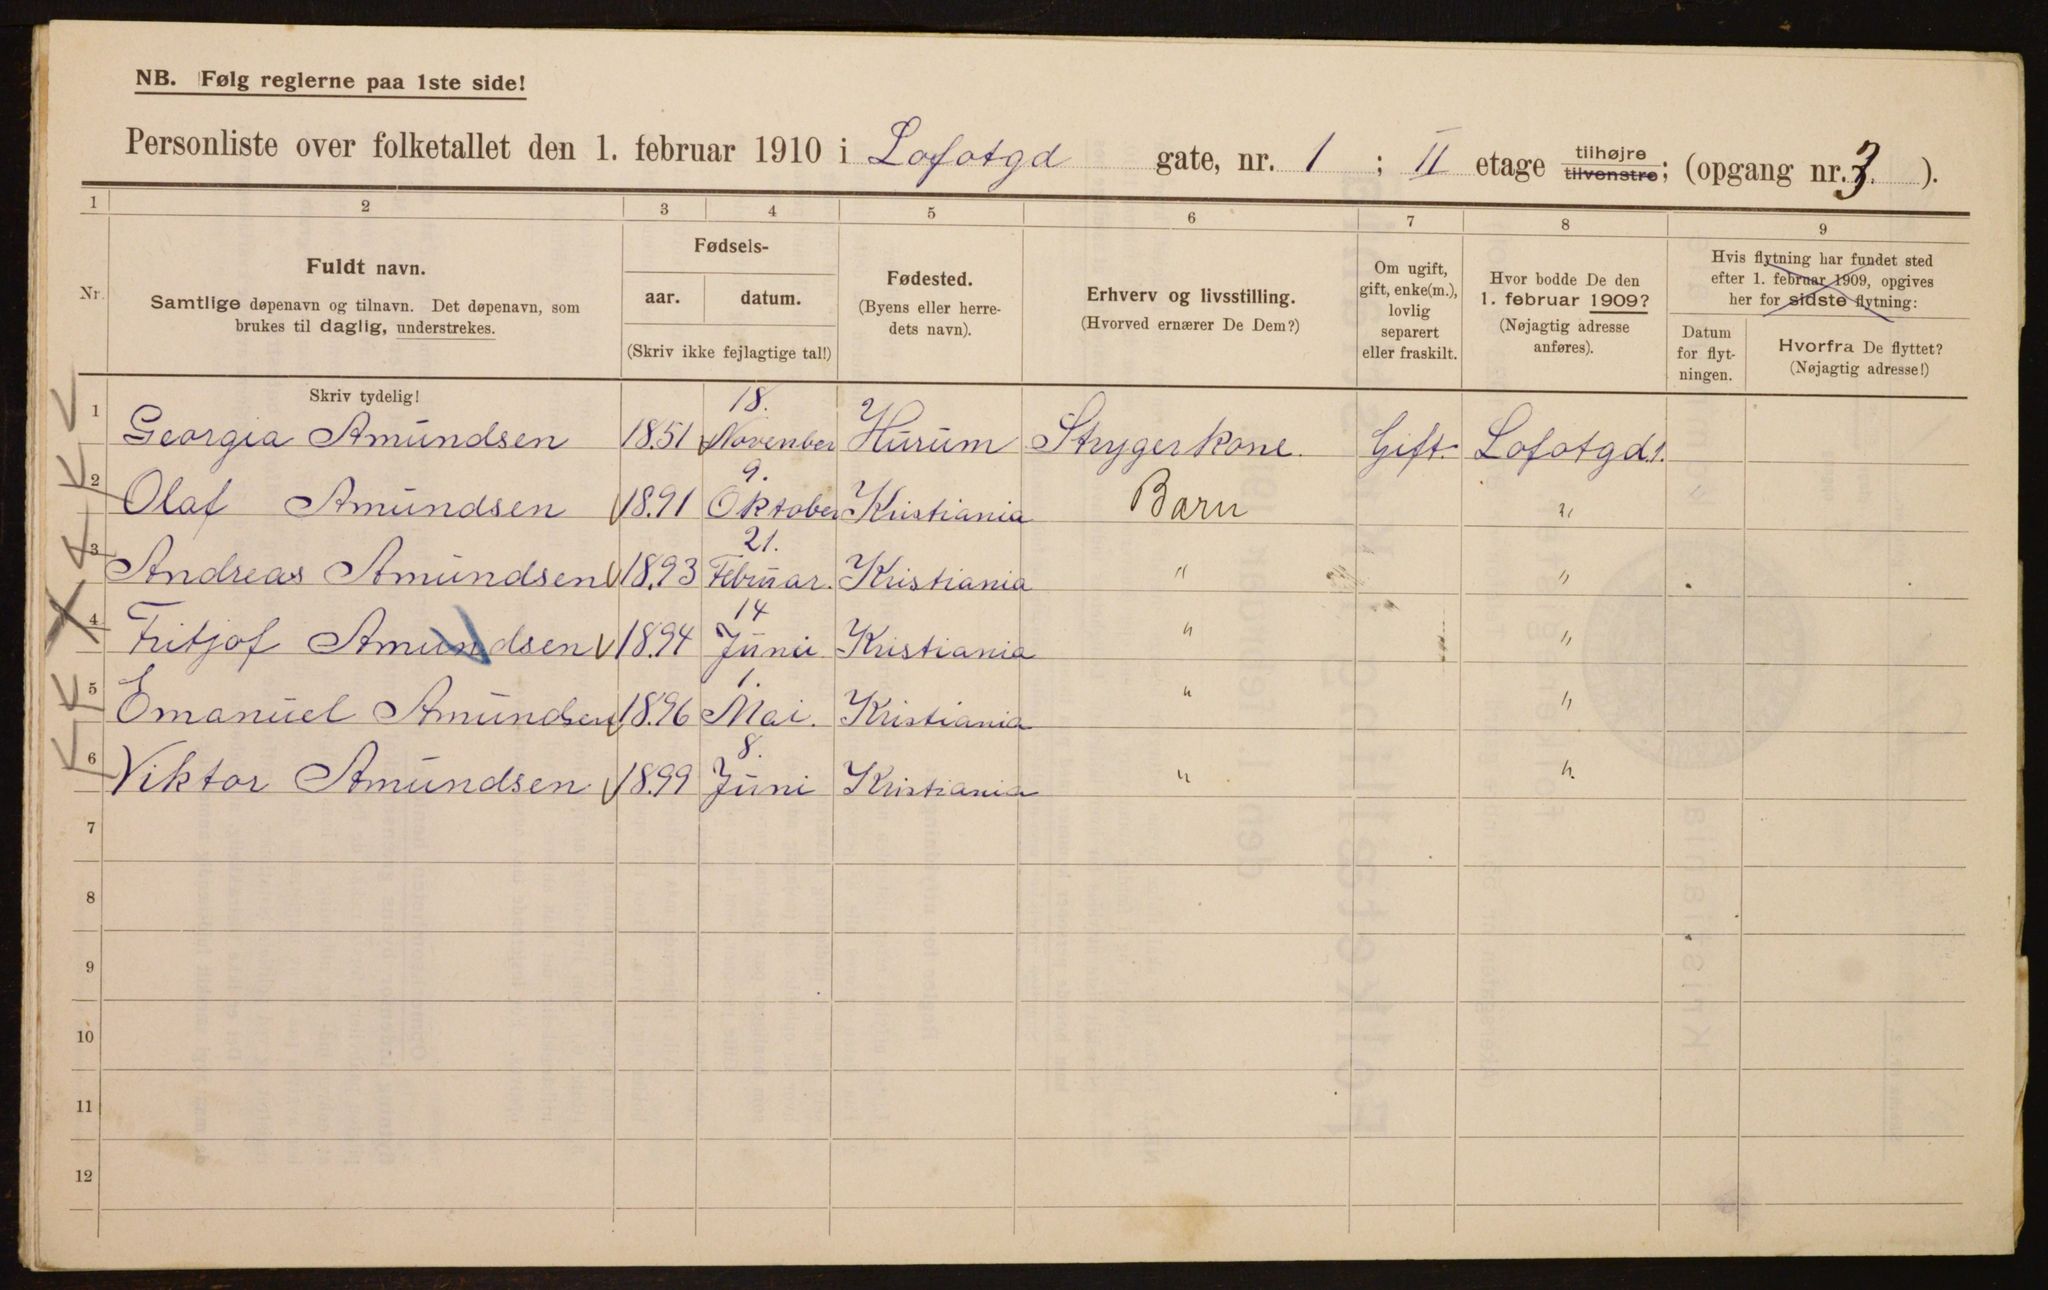 NB. Følg reglerne paa 1ste side!
Personliste over folketallet den 1. februar 1910 i Lofotgd gate, nr. 1 ; II etage tilhøjre tilvenstre; (opgang nr. 3. ).
1 2 3 4 5 6 7 8 9
Nr.
Fuldt navn.
Samtlige døpenavn og tilnavn. Det døpenavn, som
brukes til daglig, understrekes.
Skriv tydelig!
Fødsels-
aar. datum.
(Skriv ikke fejlagtige tal!)
Fødested.
(Byens eller herre-
dets navn).
Erhverv og livsstilling.
(Hvorved ernærer De Dem?)
Om ugift,
gift, enke(m.),
lovlig
separert
eller fraskilt.
Hvor bodde De den
1. februar 1909?
(Nøjagtig adresse
anføres).
Hvis flytning har fundet sted
efter 1. februar 1909, opgives
her for sidste flytning:
Datum
for flyt-
ningen.
Hvorfra De flyttet?
(Nøjagtig adresse!)
1 Georgia Amundsen 1851 18. November Hurum Strygerkone. Gift. Lofotgd 1.
2 Olaf Amundsen 1891 9. Oktober Kristiania Barn "
3 Andreas Amundsen 1893 21. Februar. Kristiania " "
4 Fritjof Amundsen 1894 14 Juni Kristiania " "
5 Emanuel Amundsen 1896 1. Mai. Kristiania " "
6 Viktor Amundsen 1899 8. Juni Kristiania " "
7
8
9
10
11
12